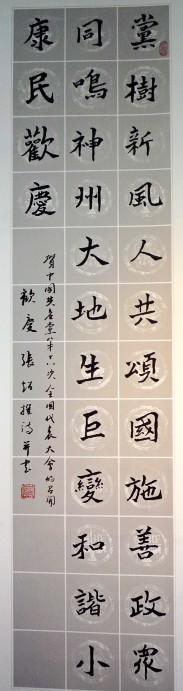 黨樹新風人共頌國施善政眾
同鳴神州大地生巨變和諧小
康民歡慶
賀中國共產黨第十八次全國代表大會的召開
歡慶張
詩並書